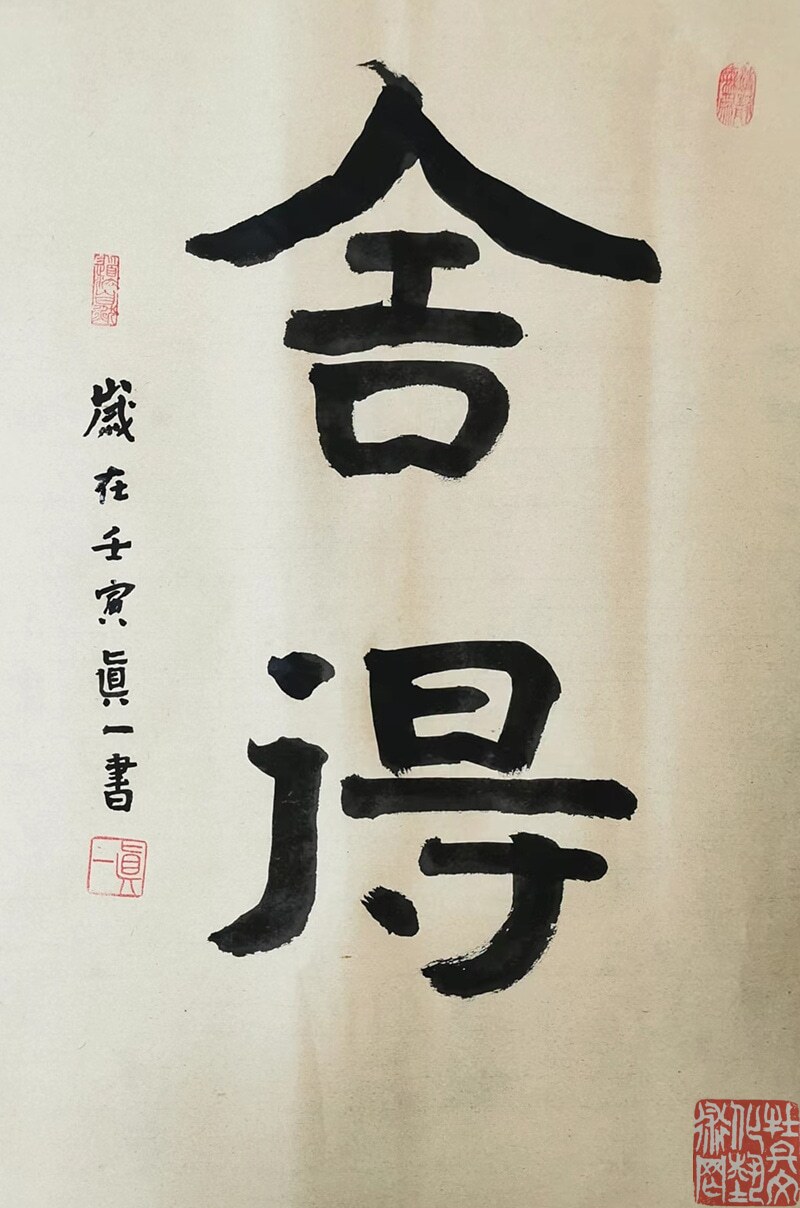 舍得
歲在壬寅眞一書
眞一